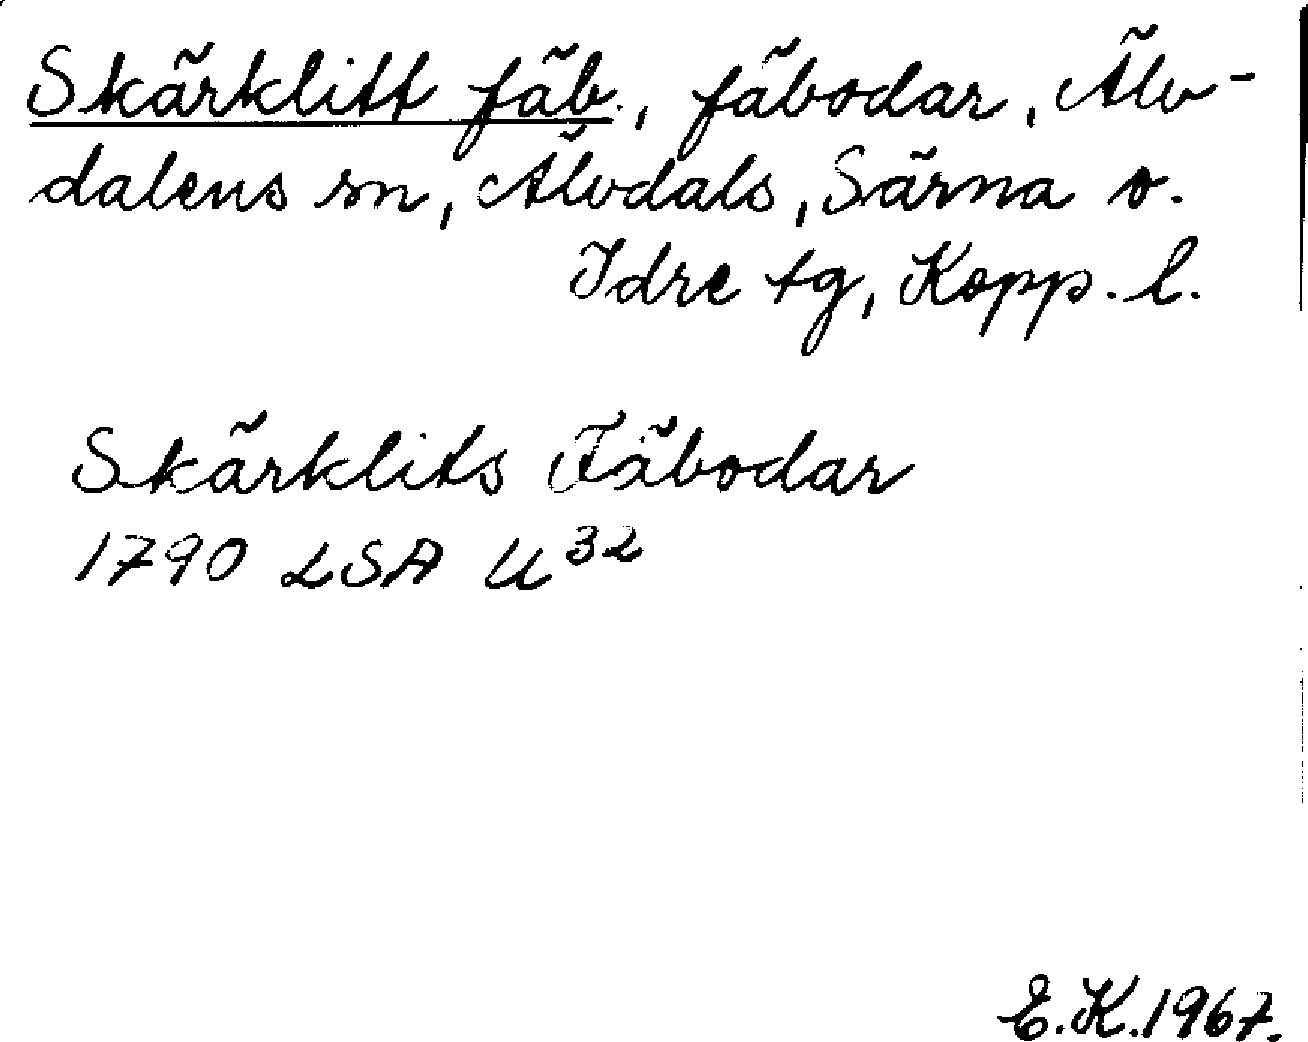 Skärklitt fäb., fäbodar, Älv-
dalens sn, Älvdals, Särna o.
Idre tg, Kopp. l.
Skärklits Fäbodar
1790 LSA U³²
E.K.1967.